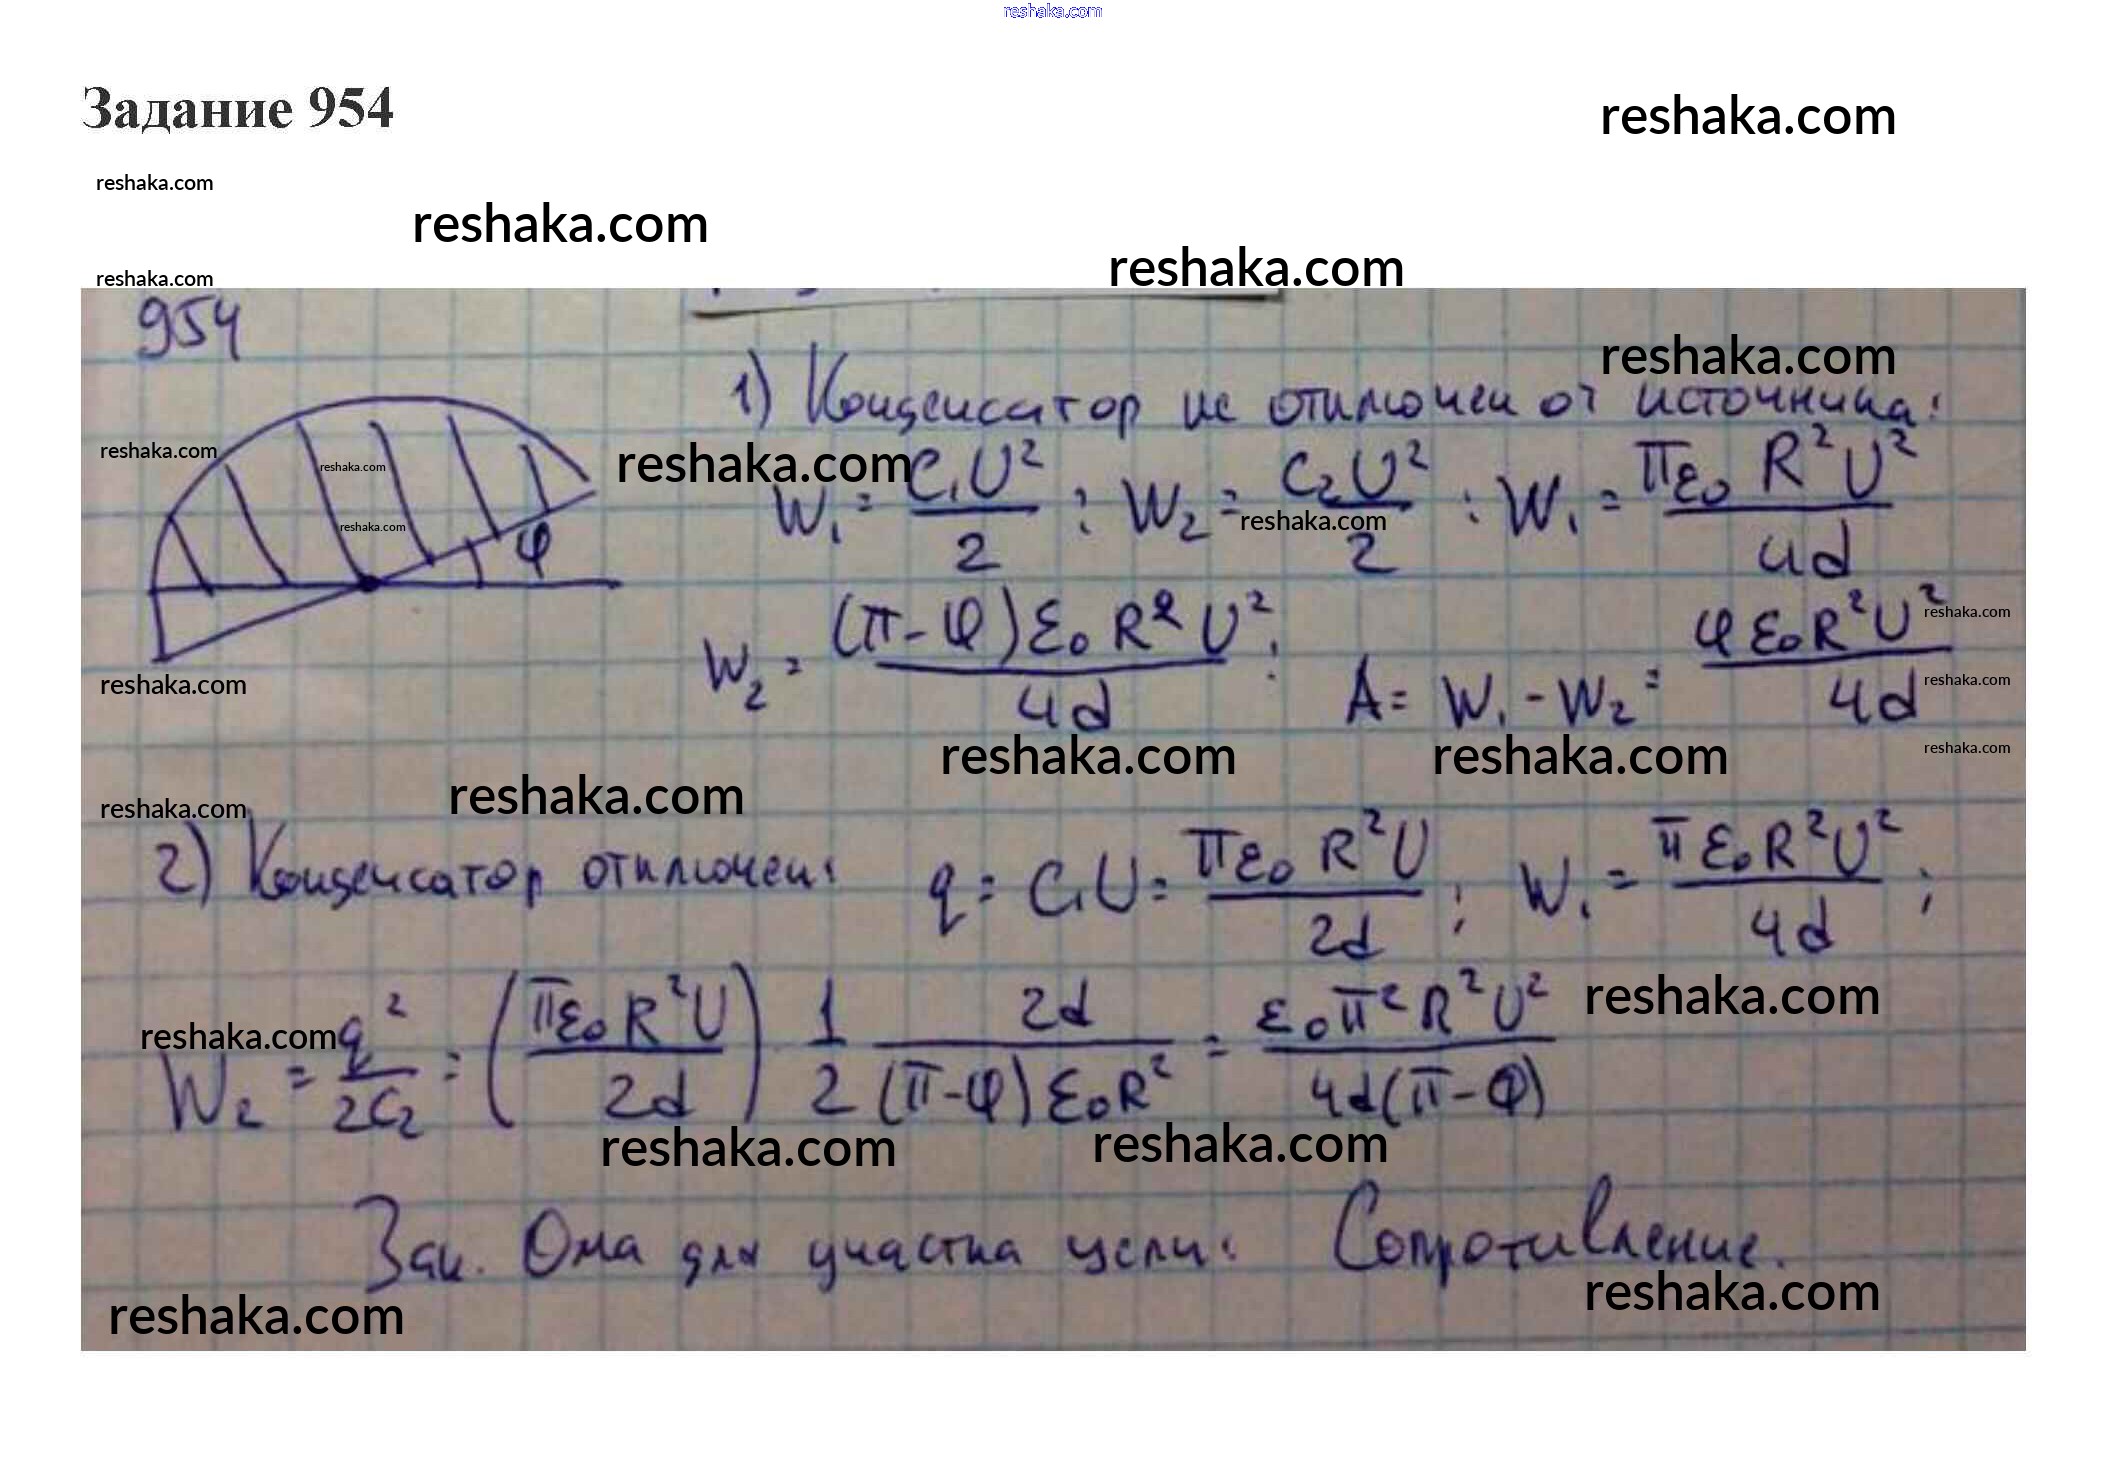 reshaka.com
Задание 954
reshaka.com
reshaka.com
reshaka.com
reshaka.com
reshaka.com
954
reshaka.com
1) Конденсатор не отключен от источника:
reshaka.com
reshaka.com
reshaka.com
W₁ = C₁U²/2 ; W₂ = C₂U²/2 ; W₁ = πε₀R²U²/4d
reshaka.com
reshaka.com
φ
W₂ = (π-φ)ε₀R²U²/4d ; A = W₁ - W₂ = φε₀R²U²/4d
reshaka.com
reshaka.com
reshaka.com
reshaka.com
reshaka.com
reshaka.com
reshaka.com
reshaka.com
2) Конденсатор отключен: q = C₁U = πε₀R²U/2d ; W₁ = πε₀R²U²/4d ;
reshaka.com
reshaka.com
W₂ = q²/2C₂ = (πε₀R²U/2d) 1/2 2d/(π-φ)ε₀R² = ε₀π²R²U²/4d(π-φ)
reshaka.com
reshaka.com
Зак. Ома для участка цепи: Сопротивление.
reshaka.com
reshaka.com